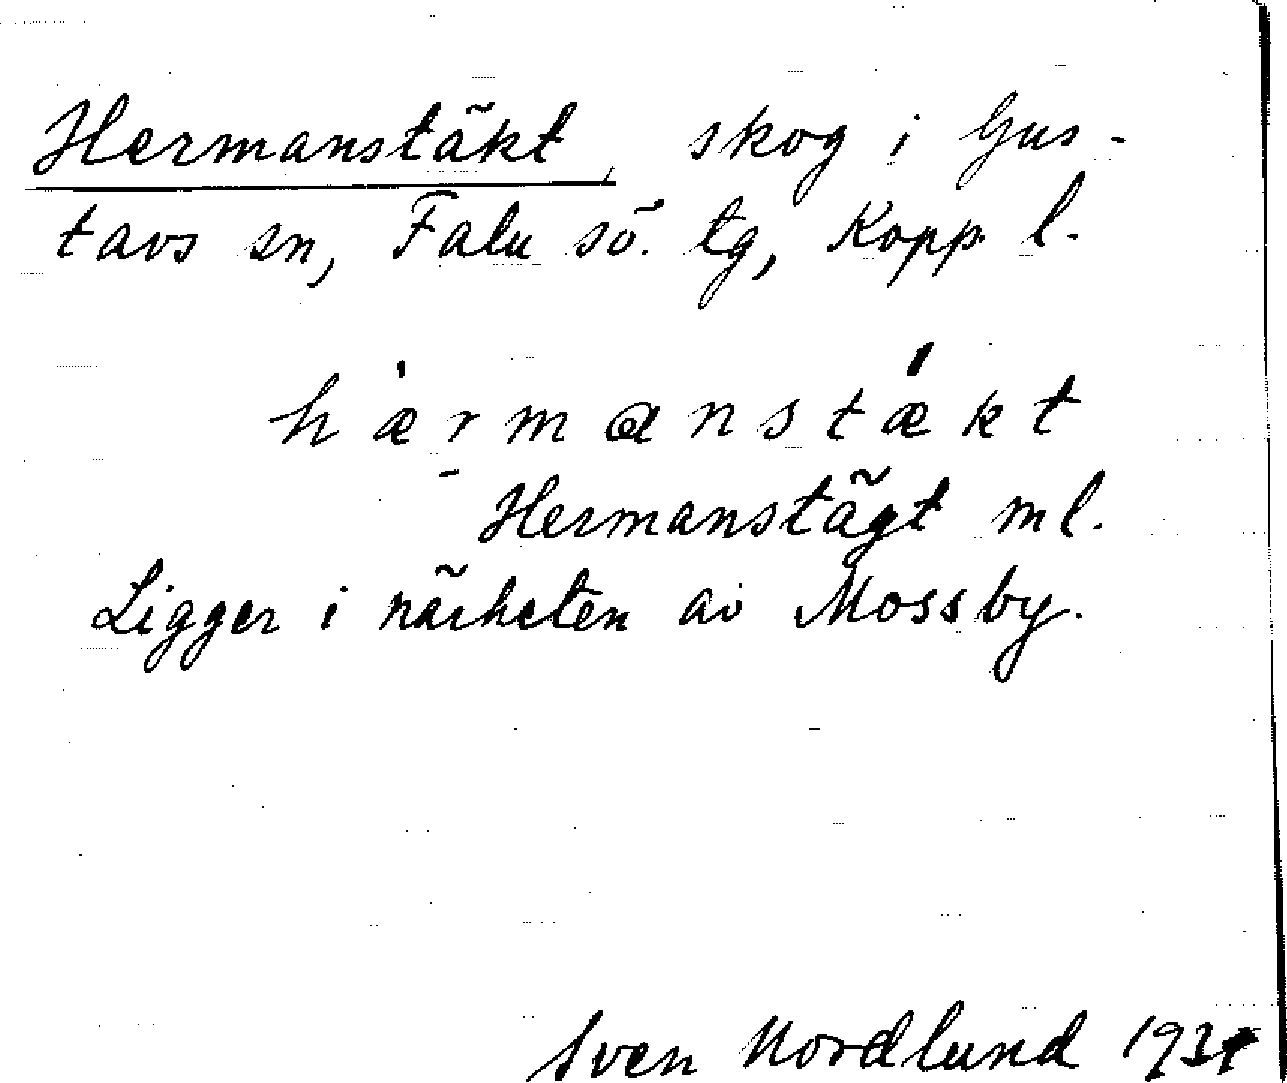 Hermanstäkt, skog i Gus-
tavs sn, Falu sö. tg, Kopp. l.
hærmanstækt
Hermanstägt ml.
Ligger i närheten av Mossby.
Sven Nordlund